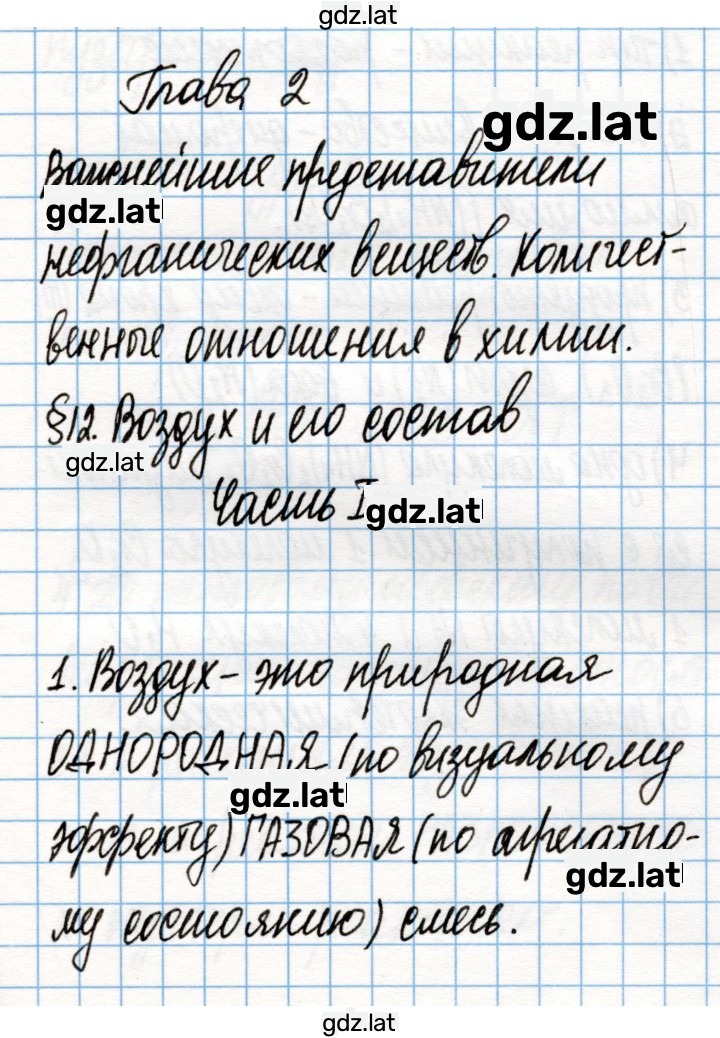 gdz.lat
Глава 2
gdz.lat
Важнейшие представители
gdz.lat
неорганических веществ. Количест-
венные отношения в химии.
§12. Воздух и его состав
gdz.lat
Часть I
gdz.lat
1. Воздух - это природная
ОДНОРОДНАЯ (по визуальному
gdz.lat
эффекту) ГАЗОВАЯ (по агрегатно-
gdz.lat
му состоянию) смесь.
gdz.lat